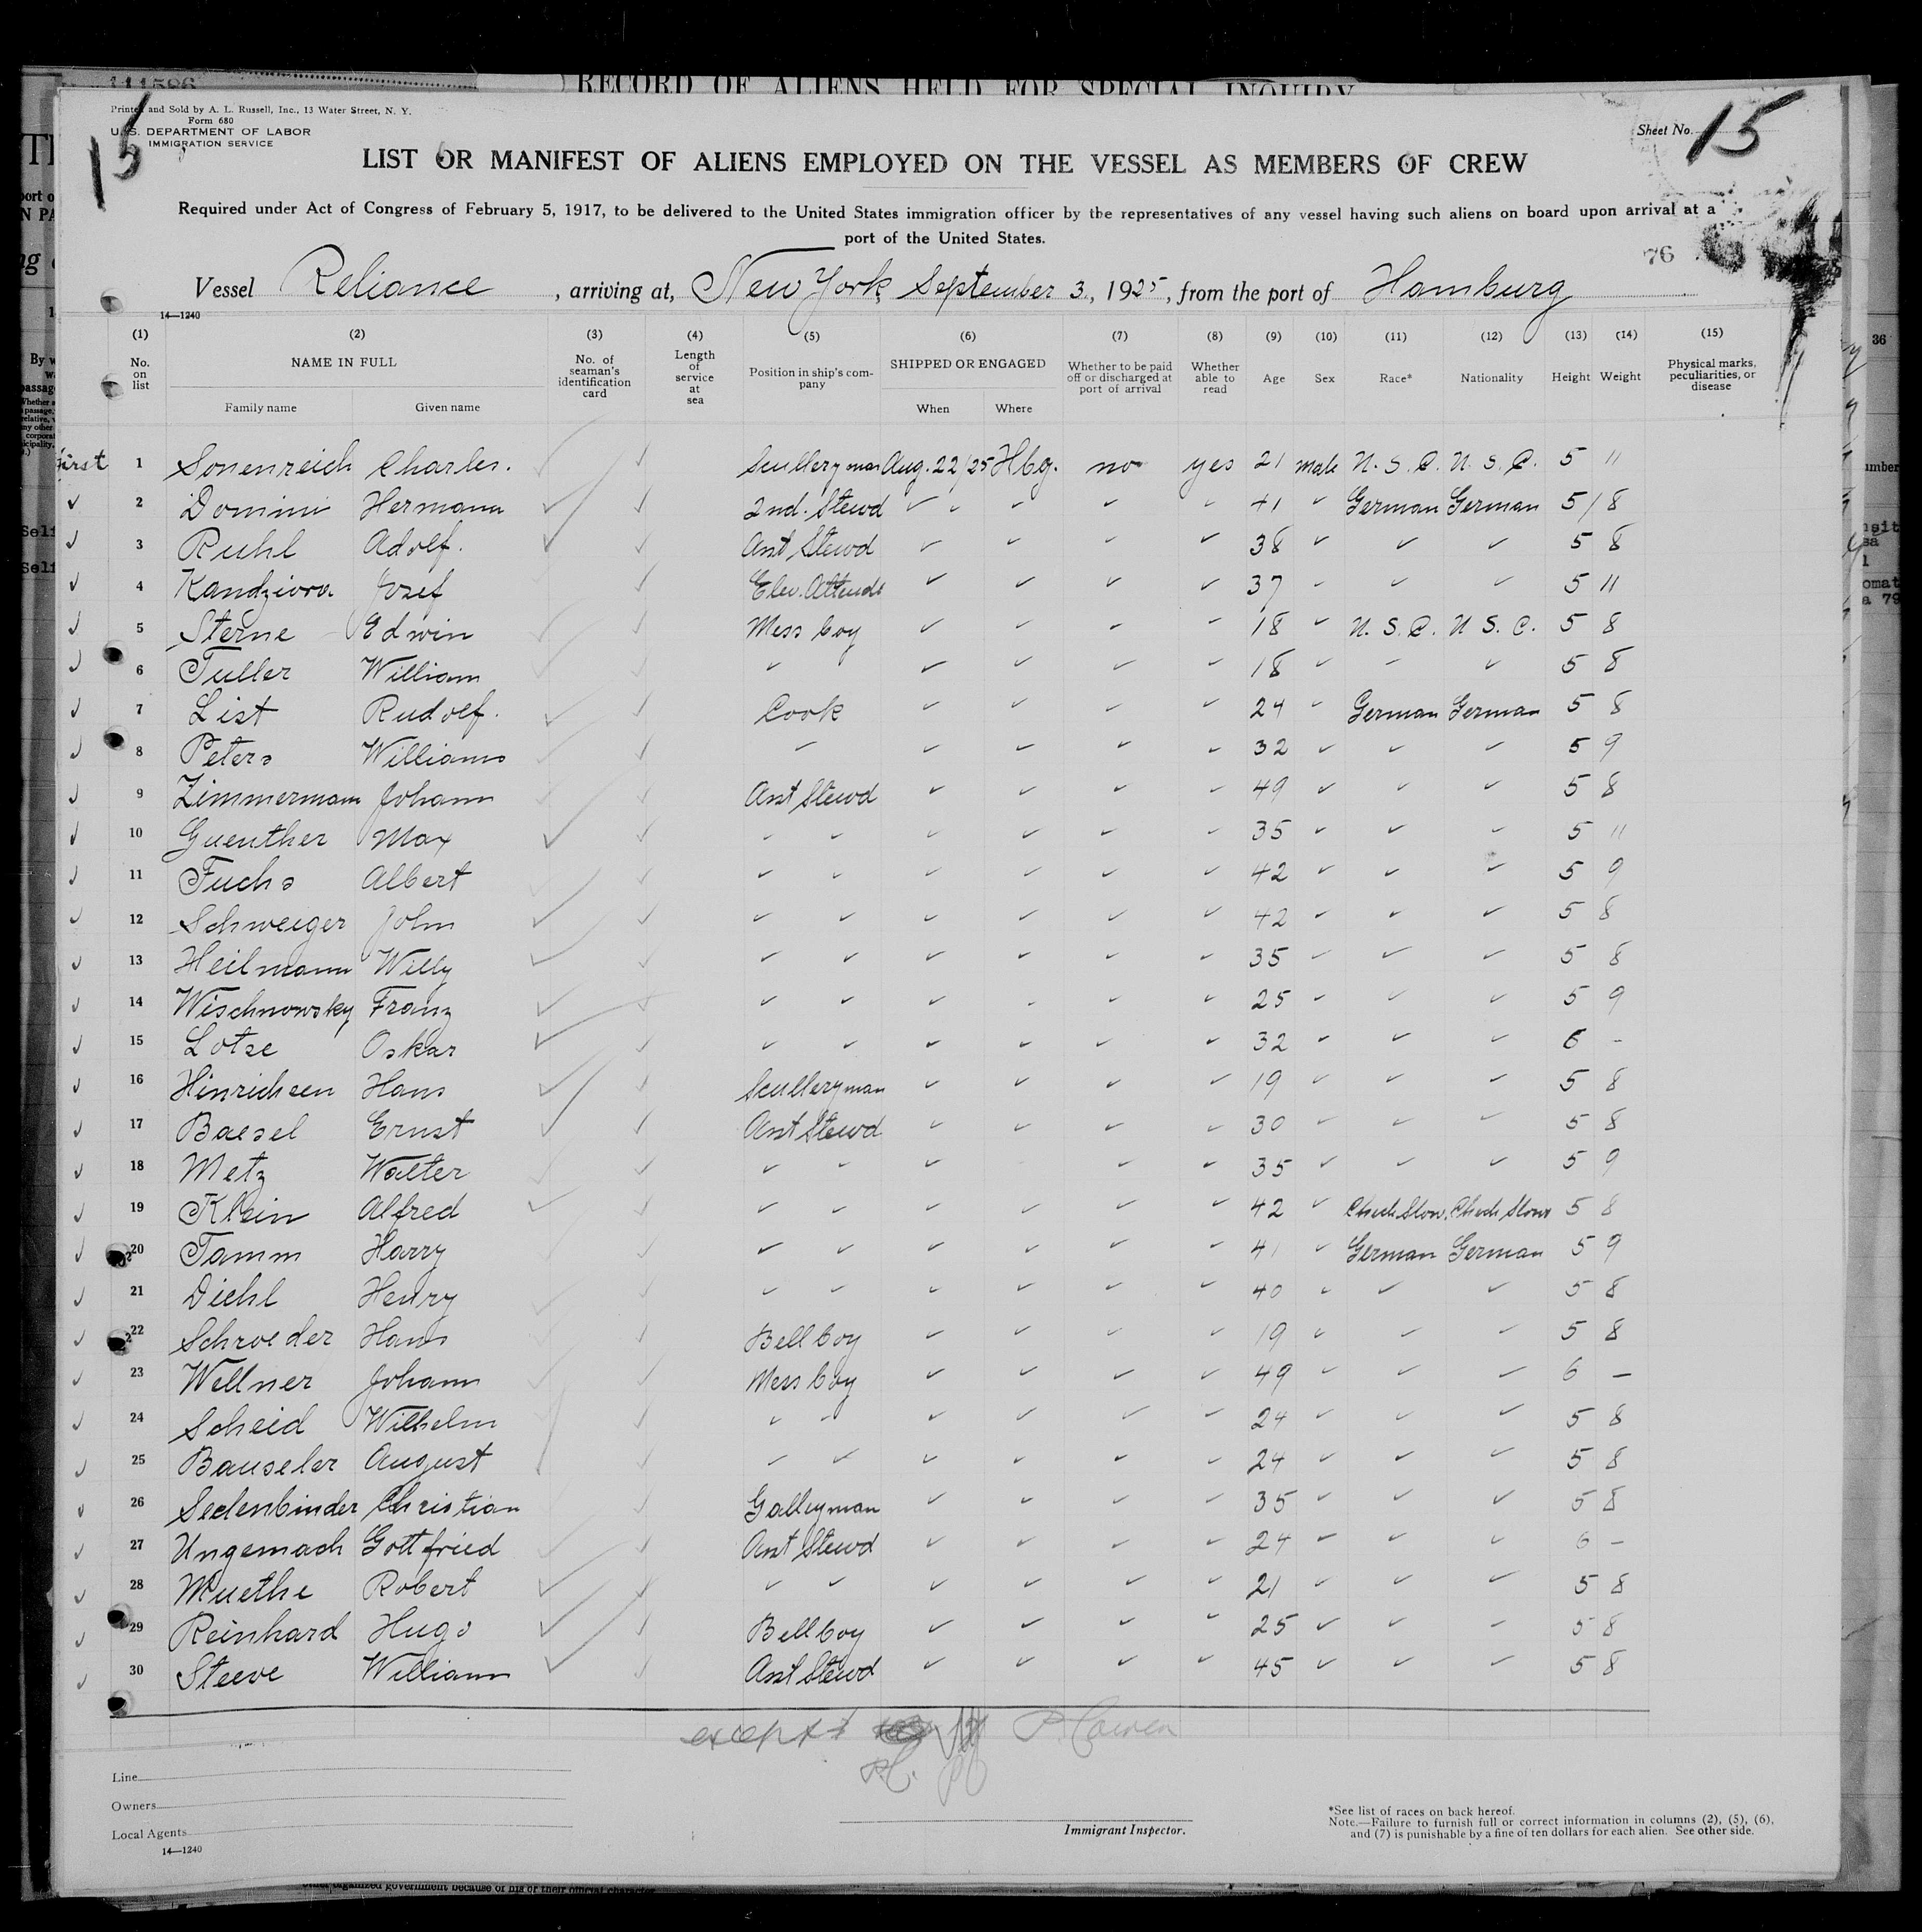 111586
RECORD OF ALIENS HELD FOR SPECIAL INQUIRY
Printed and Sold by A. L. Russell, Inc., 13 Water Street, N. Y.
Form 680
U. S. DEPARTMENT OF LABOR
IMMIGRATION SERVICE
15
Sheet No. 15
LIST OR MANIFEST OF ALIENS EMPLOYED ON THE VESSEL AS MEMBERS OF CREW
Required under Act of Congress of February 5, 1917, to be delivered to the United States immigration officer by the representatives of any vessel having such aliens on board upon arrival at a
port of the United States.
76
Vessel Reliance, arriving at, New York, September 3, 1925, from the port of Hamburg
14—1240
(1) (2) (3) (4) (5) (6) (7) (8) (9) (10) (11) (12) (13) (14) (15)
No. on list NAME IN FULL No. of seaman's identification card Length of service at sea Position in ship's company SHIPPED OR ENGAGED Whether to be paid off or discharged at port of arrival Whether able to read Age Sex Race* Nationality Height Weight Physical marks, peculiarities, or disease
Family name Given name When Where
first 1 Sonenreich Charles. ✓ Scullery man Aug. 22/25 Hbg. no yes 21 male U. S. C. U. S. C. 5 11
✓ 2 Domini Hermann ✓ ✓ 2nd. Stewd ✓ ✓ ✓ ✓ ✓ 41 ✓ German German 5/8
✓ 3 Ruhl Adolf. ✓ ✓ Asst Stewd ✓ ✓ ✓ ✓ 38 ✓ ✓ ✓ 5 8
✓ 4 Kandziora Josef ✓ Elev. Attendt ✓ ✓ ✓ ✓ 37 ✓ ✓ ✓ 5 11
✓ 5 Sterne Edwin ✓ ✓ Mess boy ✓ ✓ ✓ ✓ 18 ✓ U. S. C. U S. C. 5 8
✓ 6 Tuller William ✓ ✓ ✓ ✓ ✓ ✓ ✓ 18 ✓ ✓ ✓ 5 8
✓ 7 List Rudolf. ✓ ✓ Cook ✓ ✓ ✓ ✓ 24 ✓ German German 5 8
✓ 8 Peters Williams ✓ ✓ ✓ ✓ ✓ ✓ ✓ 32 ✓ ✓ ✓ 5 9
✓ 9 Zimmermann Johann ✓ ✓ Asst Stewd ✓ ✓ ✓ ✓ 49 ✓ ✓ ✓ 5 8
✓ 10 Guenther Max ✓ ✓ ✓ ✓ ✓ ✓ ✓ ✓ 35 ✓ ✓ ✓ 5 11
✓ 11 Fuchs Albert ✓ ✓ ✓ ✓ ✓ ✓ ✓ ✓ 42 ✓ ✓ ✓ 5 9
✓ 12 Schweiger John ✓ ✓ ✓ ✓ ✓ ✓ ✓ ✓ 42 ✓ ✓ ✓ 5 8
✓ 13 Heilmann Willy ✓ ✓ ✓ ✓ ✓ ✓ ✓ ✓ 35 ✓ ✓ ✓ 5 8
✓ 14 Wischnowsky Franz ✓ ✓ ✓ ✓ ✓ ✓ ✓ ✓ 25 ✓ ✓ ✓ 5 9
✓ 15 Lotse Oskar ✓ ✓ ✓ ✓ ✓ ✓ ✓ ✓ 32 ✓ ✓ ✓ 6 -
✓ 16 Hinrichsen Hans ✓ ✓ Sculleryman ✓ ✓ ✓ ✓ 19 ✓ ✓ ✓ 5 8
✓ 17 Baesel Ernst ✓ ✓ Asst Stewd ✓ ✓ ✓ ✓ 30 ✓ ✓ ✓ 5 8
✓ 18 Metz Walter ✓ ✓ ✓ ✓ ✓ ✓ ✓ 35 ✓ ✓ ✓ 5 9
✓ 19 Klein Alfred ✓ ✓ ✓ ✓ ✓ ✓ ✓ ✓ 42 ✓ Chech Slow. Chech Slow 5 8
✓ 20 Tamm Harry ✓ ✓ ✓ ✓ ✓ ✓ ✓ ✓ 41 ✓ German German 5 9
✓ 21 Diehl Henry ✓ ✓ ✓ ✓ ✓ ✓ ✓ ✓ 40 ✓ ✓ ✓ 5 8
✓ 22 Schroeder Hans ✓ ✓ Bell boy ✓ ✓ ✓ ✓ 19 ✓ ✓ ✓ 5 8
✓ 23 Wellner Johann ✓ ✓ Mess boy ✓ ✓ ✓ ✓ 49 ✓ ✓ ✓ 6 —
✓ 24 Scheid Wilhelm ✓ ✓ ✓ ✓ ✓ ✓ ✓ ✓ 24 ✓ ✓ ✓ 5 8
✓ 25 Bauseler August ✓ ✓ ✓ ✓ ✓ ✓ ✓ ✓ 24 ✓ ✓ ✓ 5 8
✓ 26 Sedenbinder Christian ✓ ✓ Galleyman ✓ ✓ ✓ ✓ 35 ✓ ✓ ✓ 5 8
✓ 27 Ungemach Gottfried ✓ ✓ Asst Stewd ✓ ✓ ✓ ✓ 24 ✓ ✓ ✓ 6 -
✓ 28 Muethe Robert ✓ ✓ ✓ ✓ ✓ ✓ ✓ ✓ 21 ✓ ✓ ✓ 5 8
✓ 29 Reinhard Hugo ✓ ✓ Bell boy ✓ ✓ ✓ ✓ 25 ✓ ✓ ✓ 5 8
✓ 30 Steeve William ✓ ✓ Asst Stewd ✓ ✓ ✓ ✓ 45 ✓ ✓ ✓ 5 8
except
Line
Owners
Local Agents
14—1240
Immigrant Inspector.
*See list of races on back hereof.
Note.—Failure to furnish full or correct information in columns (2), (5), (6),
and (7) is punishable by a fine of ten dollars for each alien. See other side.